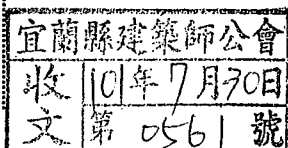 宜蘭縣建築師公會
收文
101年7月30日
第0561號